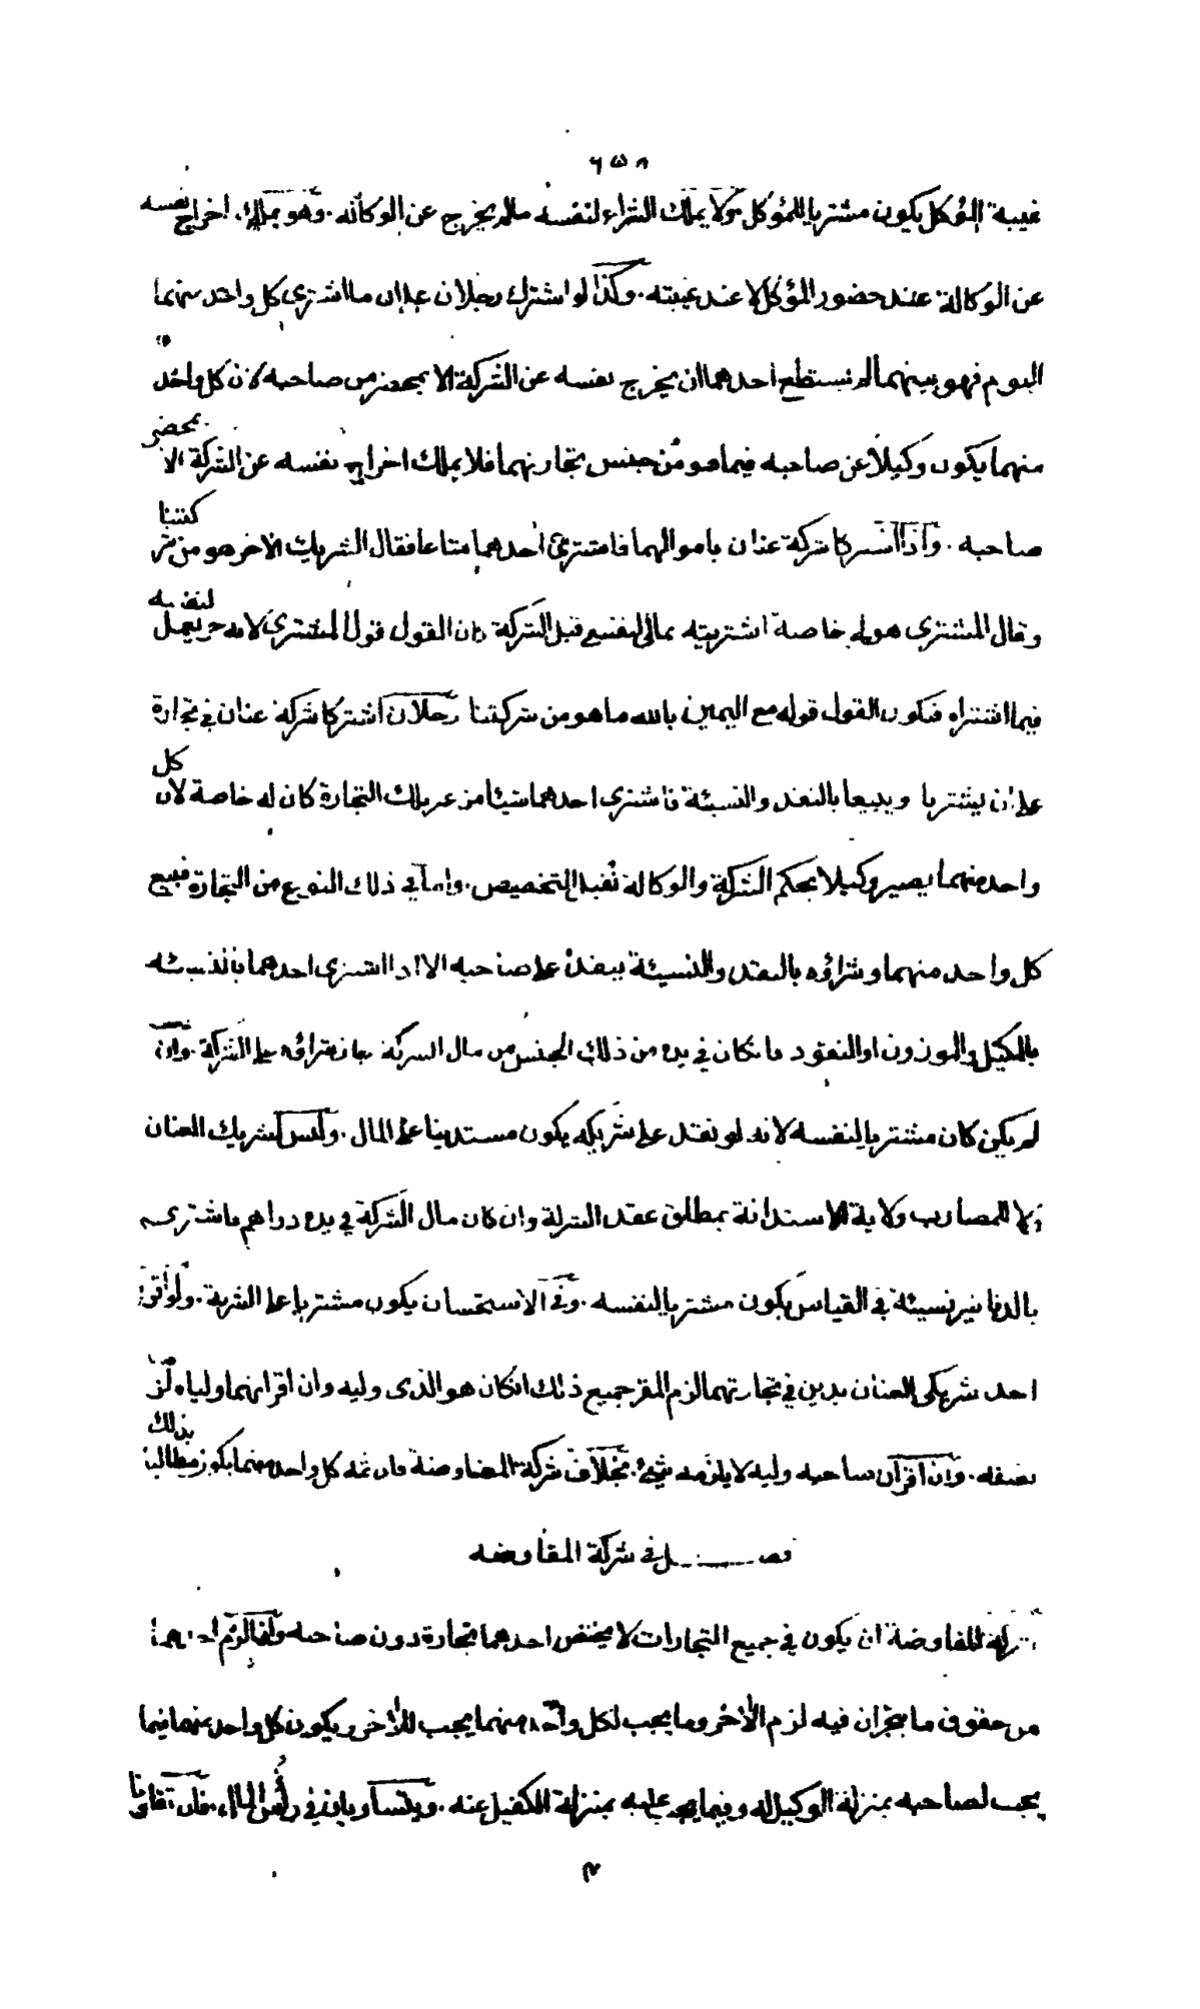 ٦٥٨
غيبة المؤكل يكون مشتريا للمؤكل ولا يملك الشراء لنفسه مالم يخرج عن الوكالة . وهو يملك اخراج نفسه
عن الوكالة عند حضور المؤكل لا عند غيبته . وكذا لو اشترك رجلان على ان ما اشترى كل واحد منهما
اليوم فهو بينهما لم يستطع احدهما ان يخرج نفسه عن الشركة الا بمحضر من صاحبه لان كل واحد
منهما يكون وكيلا عن صاحبه فيما هو من جنس تجارتهما فلا يملك اخراج نفسه عن الشركة الا بمحضر
صاحبه . واذا اشتركا شركة عنان باموالهما فاشترى احدهما متاعا فقال الشريك الاخر هو من شركتنا
وقال المشترى هو لى خاصة اشتريته بمالى لنفسى قبل الشركة كان القول قول المشترى لانه حر يعمل لنفسه
فيما اشتراه فيكون القول قوله مع اليمين بالله ما هو من شركتنا رجلان اشتركا شركة عنان فى تجارة
على ان يشتريا ويبيعا بالنقد والنسيئة فاشترى احدهما شيئا من غير تلك التجارة كان له خاصة لان كل
واحد منهما يصير وكيلا بحكم الشركة والوكالة تقبل التخصيص . واما فى ذلك النوع من التجارة فبيع
كل واحد منهما وشراؤه بالنقد والنسيئة ينفذ على صاحبه الا اذا اشترى احدهما بالنسيئة
بالمكيل والموزون او النقود فان كان فى يده من ذلك الجنس من مال الشركة جاز شراؤه على الشركة . وان
لم يكن كان مشتريا لنفسه لانه لو نفذ على شريكه يكون مستدينا على المال . وليس لشريك العنان
ولا للمضارب ولاية الاستدانة بمطلق عقد الشركة وان كان مال الشركة فى يده دراهم فاشترى
بالدنانير نسيئة فى القياس يكون مشتريا لنفسه . وفى الاستحسان يكون مشتريا على الشركة . ولو اقر
احد شريكى العنان بدين فى تجارتهما لزم المقر جميع ذلك ان كان هو الذى وليه وان اقر انهما ولياه لزمه
نصفه . وان اقر ان صاحبه وليه لا يلزمه شئ . بخلاف شركة المفاوضة فان ثمه كل واحد منهما يكون مطالبا بذلك
فصل فى شركة المفاوضه
شركة المفاوضة ان يكون فى جميع التجارات لا يختص احدهما بتجارة دون صاحبه وان ما لزم احدهما
من حقوق ما يتجران فيه لزم الاخر وما يجب لكل واحد منهما يجب للأخر ويكون كل واحد منهما فيما
يجب لصاحبه بمنزلة الوكيل له وفيما يجب عليه بمنزلة الكفيل عنه . ويتساويان فى رأس المال . فان تفاوتا